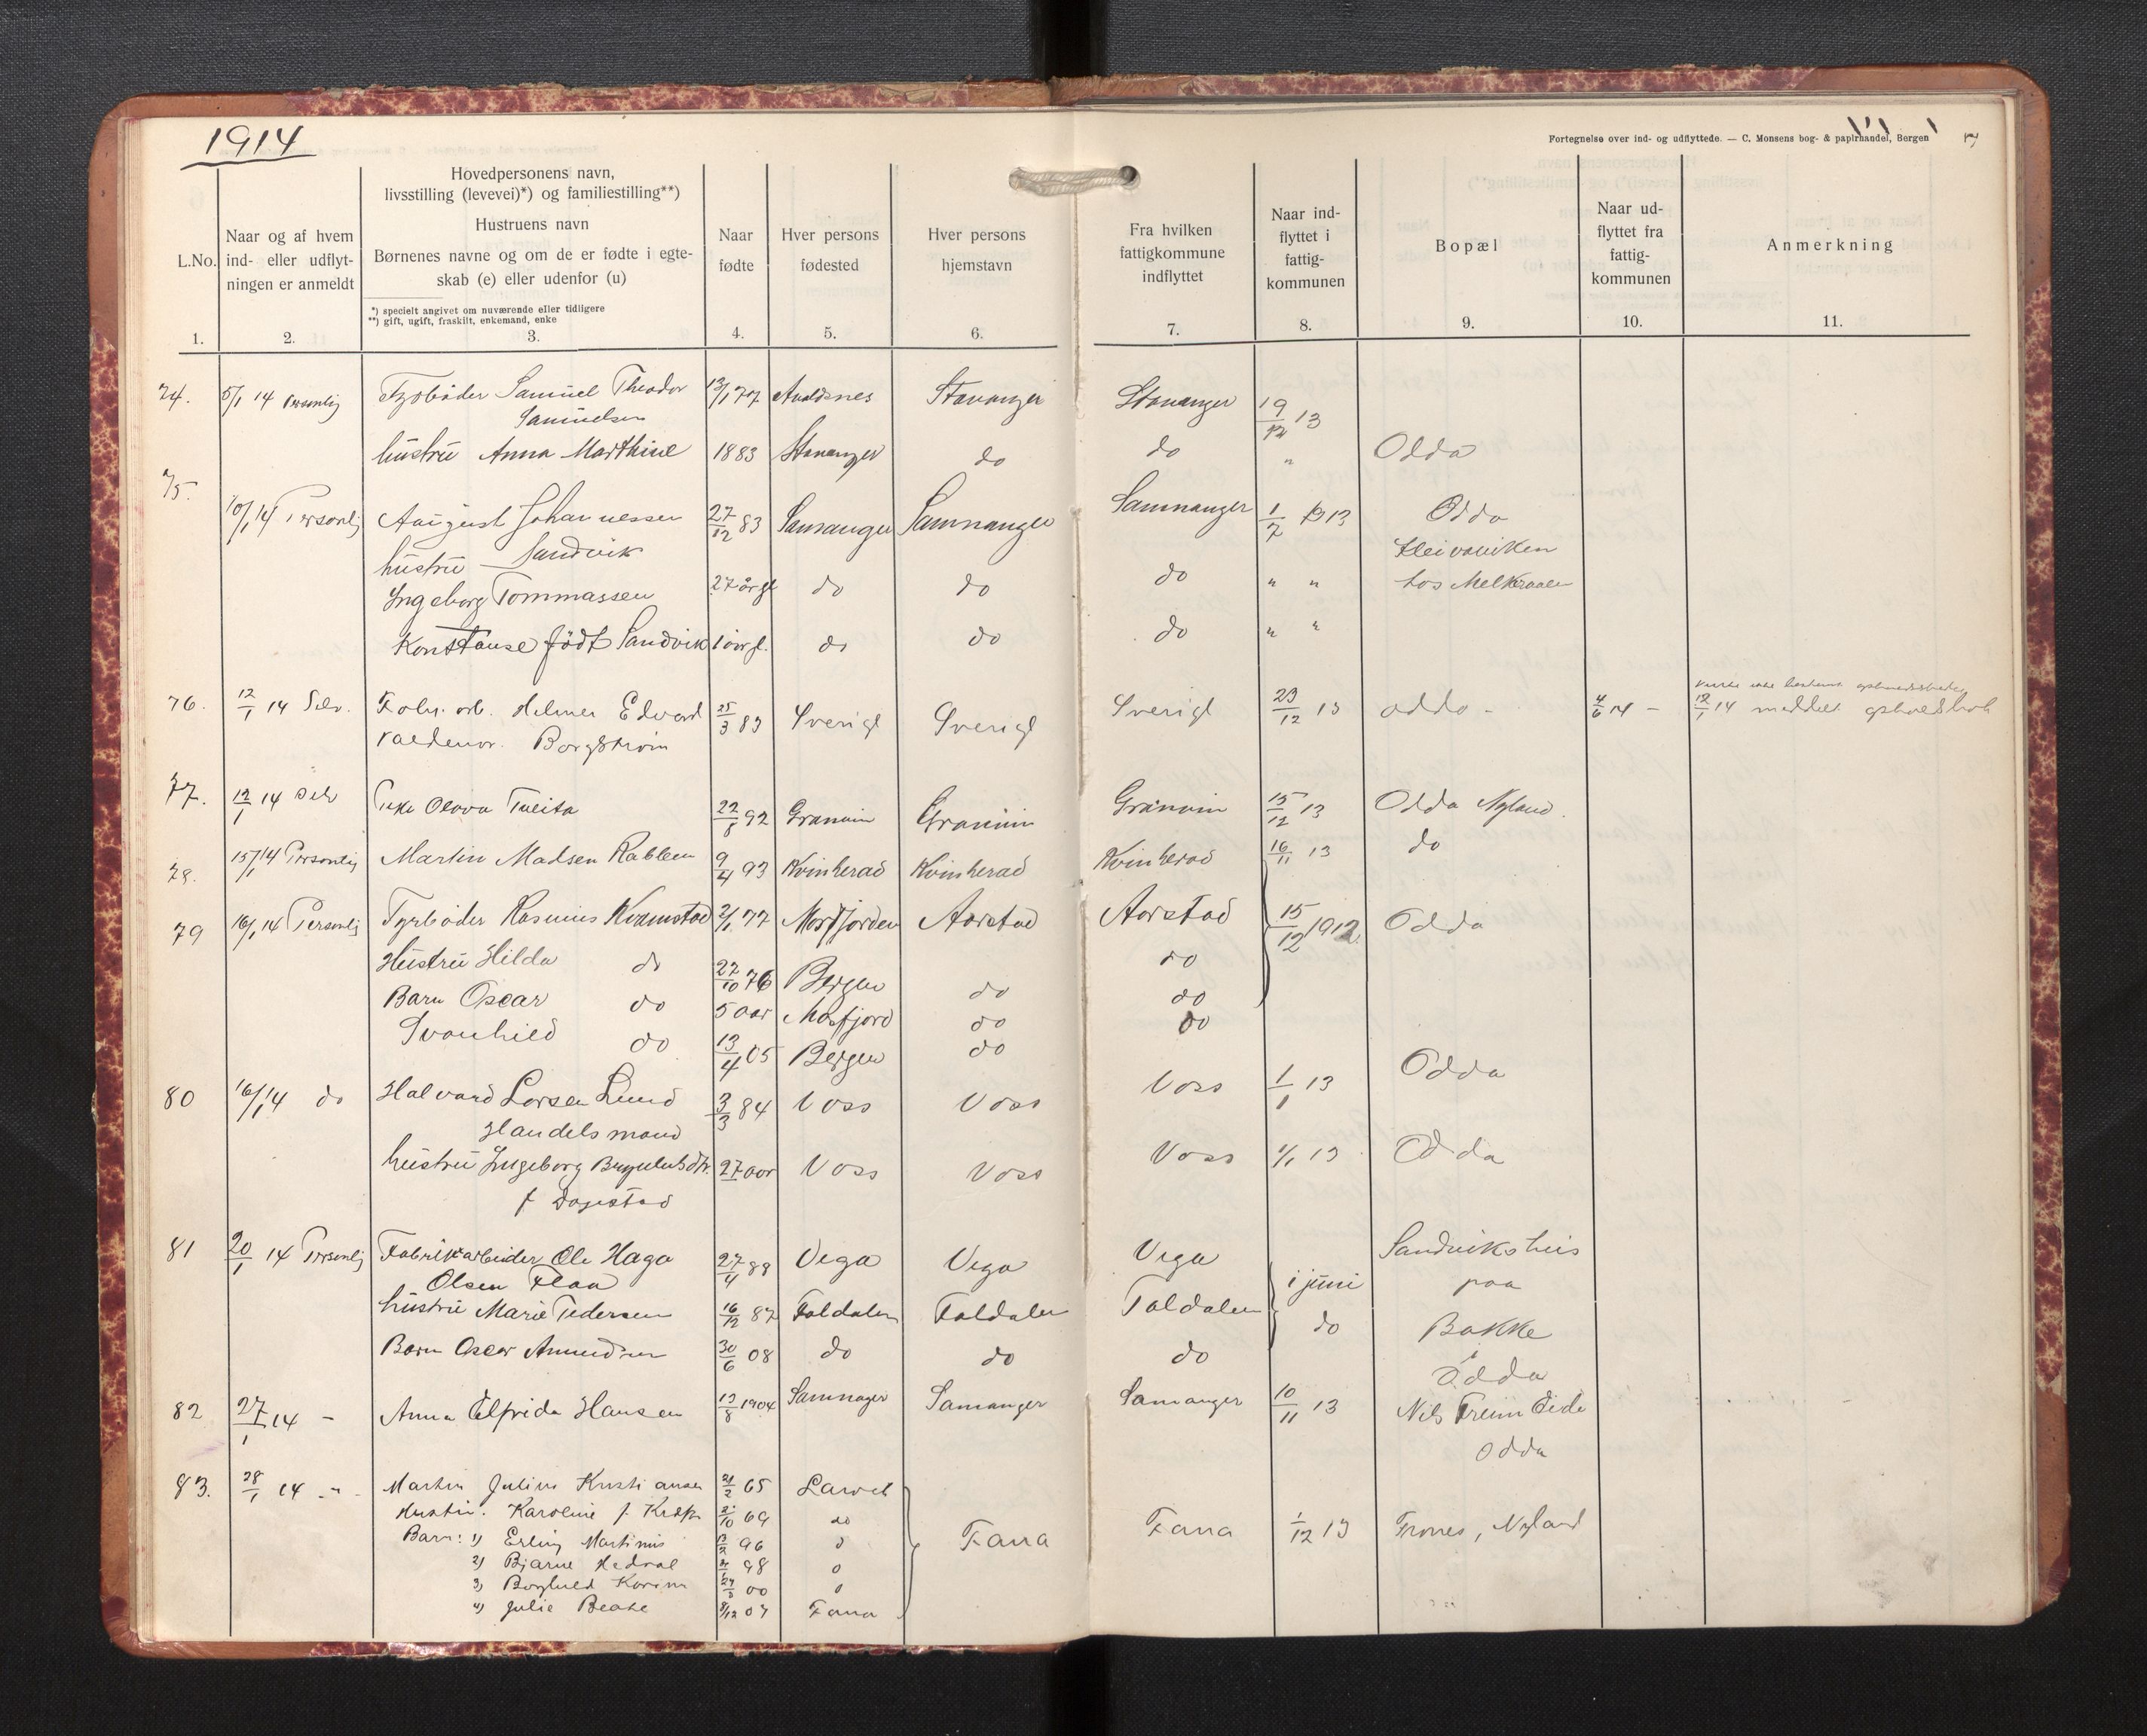 1914
Fortegnelse over ind- og udflyttede. — C. Monsens bog- & papirhandel, Bergen 7
L.No.
1.
Naar og af hvem
ind- eller udflyt-
ningen er anmeldt
2.
Hovedpersonens navn,
livsstilling (levevei)*) og familiestilling**)
Hustruens navn
Børnenes navne og om de er fødte i egte-
skab (e) eller udenfor (u)
*) specielt angivet om nuværende eller tidligere
**) gift, ugift, fraskilt, enkemand, enke
3.
Naar
fødte
4.
Hver persons
fødested
5.
Hver persons
hjemstavn
6.
Fra hvilken
fattigkommune
indflyttet
7.
Naar ind-
flyttet i
fattig-
kommunen
8.
Bopæl
9.
Naar ud-
flyttet fra
fattig-
kommunen
10.
Anmerkning
11.
74. 5/1 14 Personlig Fyrbøder Samuel Theodor 13/1 77 Avaldsnes Stavanger Stavanger 19/12 13
Samuelsen
hustru Anna Marthine 1883 Stavanger do do " Odda
75. 10/1 14 Personlig August Johannessen 27/12 83 Samnanger Samnanger Samnanger 1/7 1913 Odda
hustru Sandvik Eleivaviken
Ingeborg Tommassen 27 år gl do do do " " hos Melkeraaen
Konstanse født Sandvik 1 år gl. do do do " "
76. 12/1 14 Selv. Fabr. arb. Helmer Edvard 25/3 83 Sverige Sverige Sverige 23/12 13 Odda - 4/6 14 - 12/1 14 meddelt opholdsbok
Valdemar Borgstrøm
77. 12/1 14 Selv Pike Olava Tveita 22/8 92 Granvin Granvin Granvin 15/12 13 Odda Nyland.
78. 15/1 14 Personlig Martin Madsen Rabben 9/4 93 Kvinherad Kvinherad Kvinherad 16/11 13 do
79 16/1 14 Personlig Fyrbøder Rasmus Kvamstad 2/1 77 Mosfjorden Aarstad Aarstad 15/12 1912 Odda
Hustru Hilda do 22/10 76 Bergen do do
Barn Oscar do 5 aar Mosfjord do do
Svanhild do 13/4 05 Bergen do do
80 16/1 14 do Halvard Larsen Lund 3/3 84 Voss Voss Voss 1/1 13 Odda
Handelsmand
hustru Ingeborg 27 aar Voss Voss Voss 1/1 13 Odda
f Dagestad
81 20/1 14 Personlig Fabrikarbeider Ole Haga 27/4 88 Vega Vega Vega Sandvikshus
Olsen Flaa i juni paa
hustru Marie Pedersen 16/12 87 Foldalen Foldalen Foldalen do Bakke
Barn Oscar Amundsen 30/6 08 do do do i Odda
82 27/1 14 - Anna Elfrida Hansen 13/8 1904 Samnager Samanger Samanger 10/11 13 Nils Freim Eide
Odda
83. 28/1 14 -"- Martin Julius Kristiansen 21/2 65 Larvik
Hustru. Karoline f. 2/10 69 do
Barn: 1) Erling Martinus 96 Fana Fana 1/12 13 Trones, Nyland
2) Bjarne 98
3) Borghild Karin 00
4) Julie Beate 8/12 07 Fana